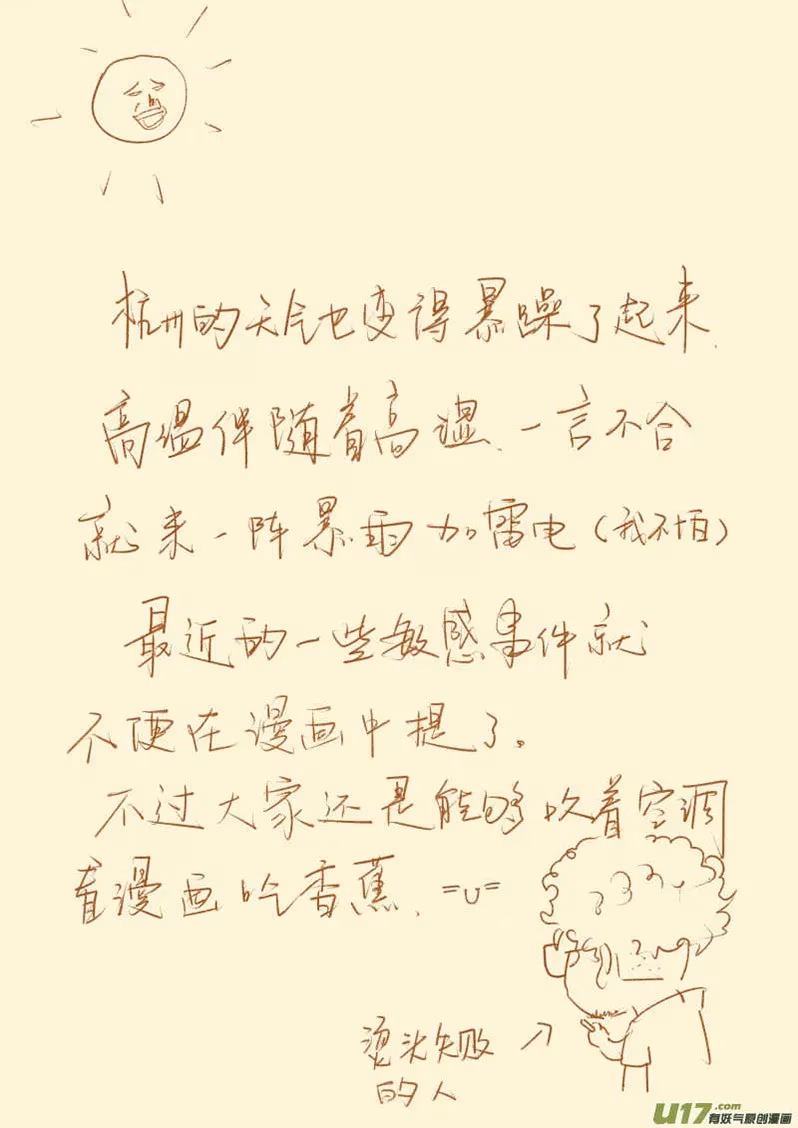 杭州的天气也变得暴躁了起来.
高温伴随着高湿、一言不合
就来一阵暴雨加雷电(我不怕)
最近的一些敏感事件就
不便在漫画中提了。
不过大家还是能够吹着空调
看漫画吃香蕉. =u=
烫头失败
的人
U17.com
有妖气原创漫画